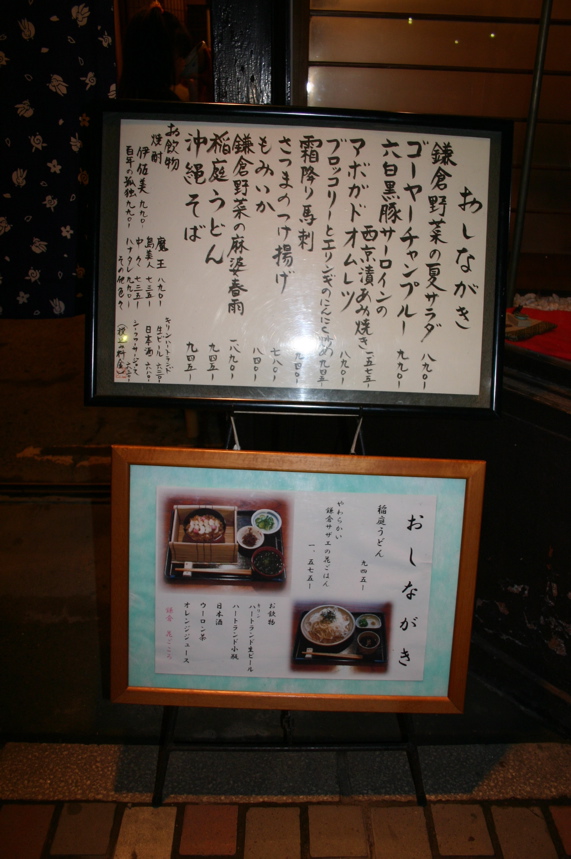 おしながき
鎌倉野菜の夏サラダ 八九〇-
ゴーヤーチャンプルー 九九〇-
六白黒豚サーロインの
西京漬あみ焼き 一五七五-
アボガドオムレツ 八九〇-
ブロッコリーとエリンギのにんにく炒め 九四五-
霜降り馬刺
さつまのつけ揚げ 七八〇-
もみいか 八四〇-
鎌倉野菜の麻婆春雨 一八九〇-
稲庭うどん 九四五-
沖縄そば 九四五-
お飲物
焼酎
伊佐美 九九〇-
百年の孤独 九九〇-
魔王 八九〇-
島美人 七三五-
中々 七三五-
ハナタレ 九九〇-
その他色々
キリンハートランド
生ビール
日本酒
おしながき
稲庭うどん
九四五-
やわらかい
鎌倉サザエの花ごはん
一、五七五-
お飲物
キリン
ハートランド生ビール
ハートランド小瓶
日本酒
ウーロン茶
オレンジジュース
鎌倉 花ごころ